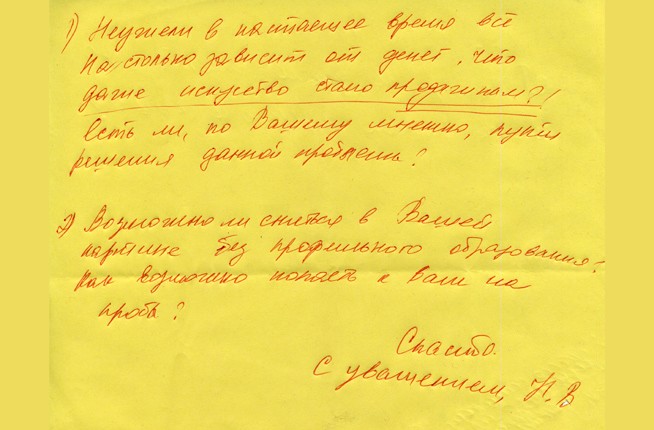 1) Неужели в настоящее время всё
настолько зависит от денег, что
даже искусство стало продажным?!
Есть ли, по Вашему мнению, пути
решения данной проблемы?
2) Возможно ли сняться в Вашей
картине без профильного образования?
Как возможно попасть к Вам на
пробы?
Спасибо.
С уважением, Н.В